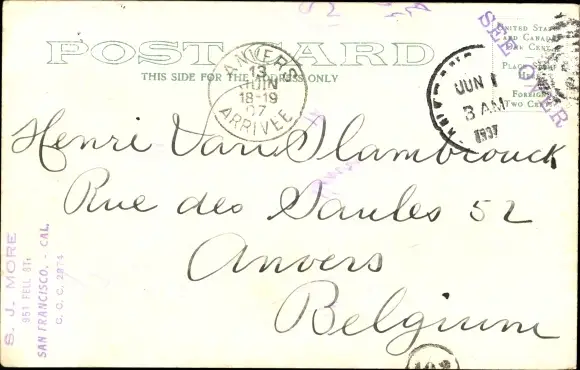 POST CARD
THIS SIDE FOR THE ADDRESS ONLY
UNITED STATES
AND CANADA
ONE CENT
PLACE STAMP
HERE
FOREIGN
TWO CENTS
SEE OVER
ANVERS
13
JUIN
18-19
07
ARRIVÉE
JUN 1
3 AM
1907
Henri Van Slambrouck
Rue des Saules 52
Anvers
Belgium
S. J. MORE
951 FELL ST.
SAN FRANCISCO, - CAL.
C. C. C. 2874